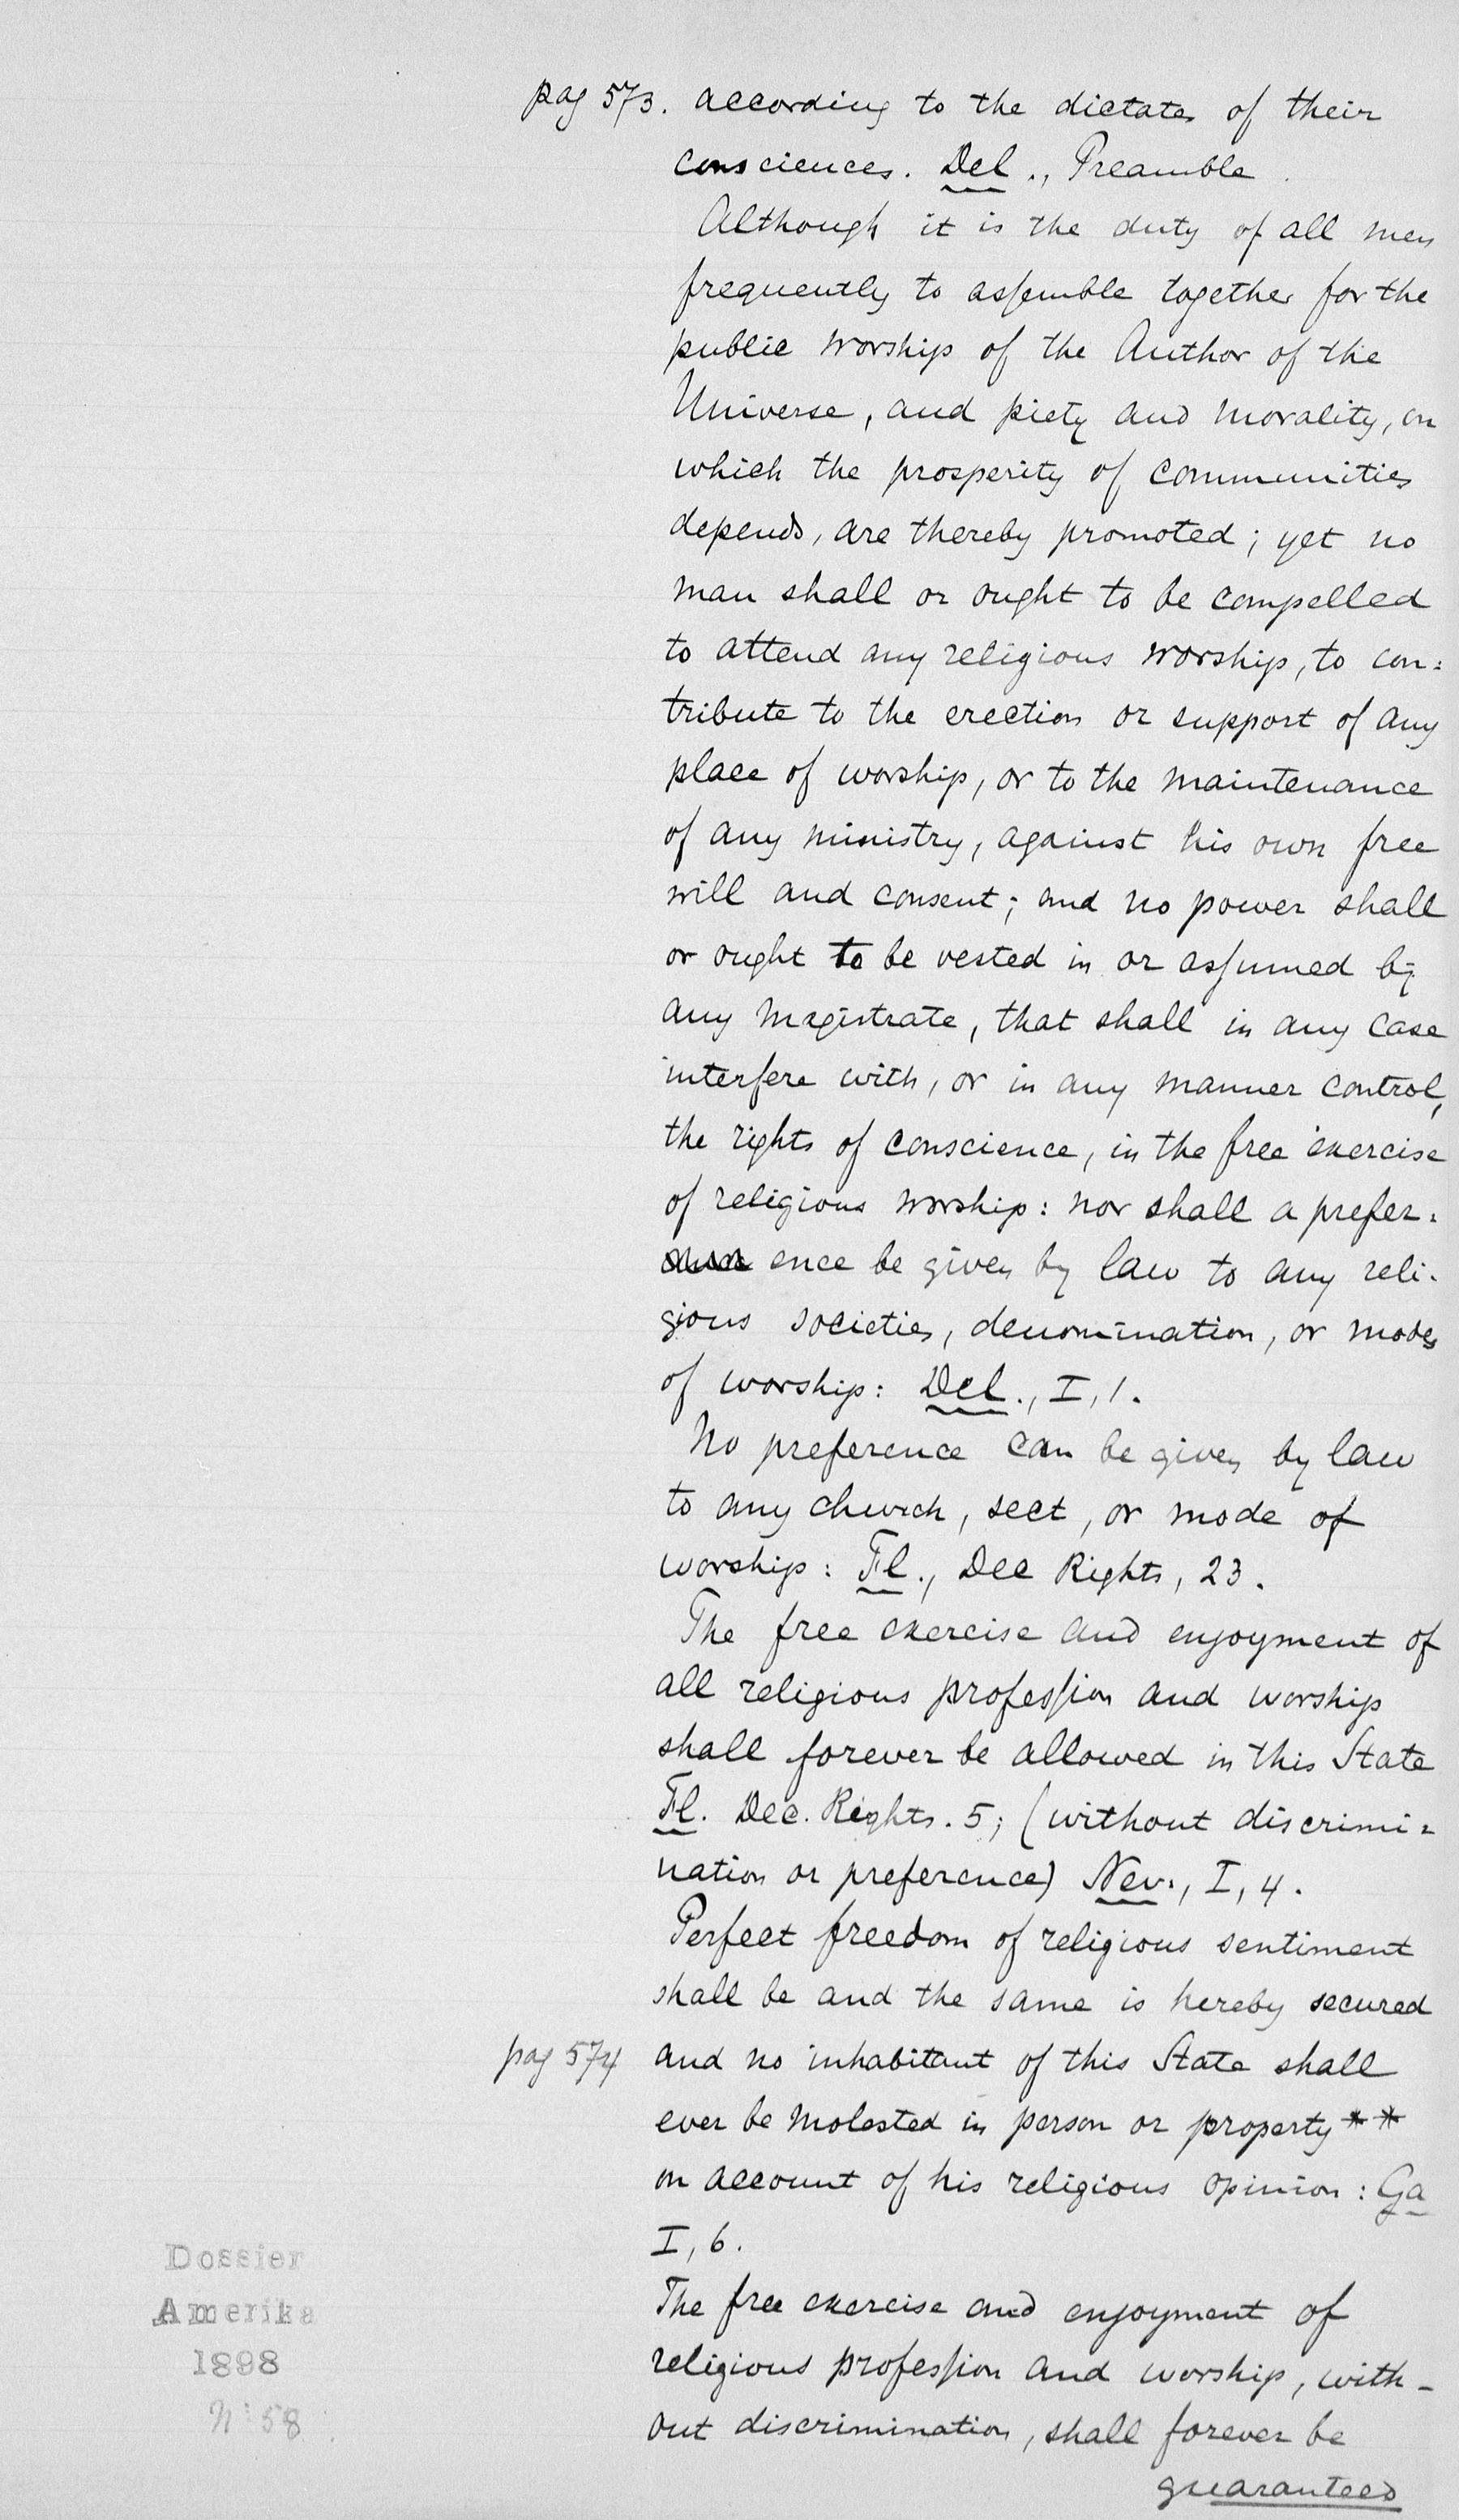 pag 573. according to the dictates of their
consciences. Del., Preamble.
Although it is the duty of all men
frequently to assemble together for the
public worship of the Author of the
Universe, and piety and morality, on
which the prosperity of communities
depends, are thereby promoted; yet no
man shall or ought to be compelled
to attend any religious worship, to con=
tribute to the erection or support of any
place of worship, or to the maintenance
of any ministry, against his own free
will and consent; and no power shall
or ought to be vested in or assumed by
any magistrate, that shall in any case
interfere with, or in any manner control,
the rights of conscience, in the free exercise
of religious worship: nor shall a prefer=
ence be given by law to any reli-
gious societies, denomination, or modes
of worship: Del., I, 1.
No preference can be given by law
to any church, sect, or mode of
worship: Fl., Dec Rights, 23.
The free exercise and enjoyment of
all religious profession and worship
shall forever be allowed in this State
Fl. Dec. Rights. 5; (without discrimi=
nation or preference) Nev., I, 4.
Perfect freedom of religious sentiment
shall be and the same is hereby secured
pag 574 and no inhabitant of this State shall
ever be molested in person or property **
on account of his religious opinion: Ga
I, 6.
The free exercise and enjoyment of
religious profession and worship, with-
out discrimination, shall forever be
guaranteed
Dossier
Amerika
1898
No 58